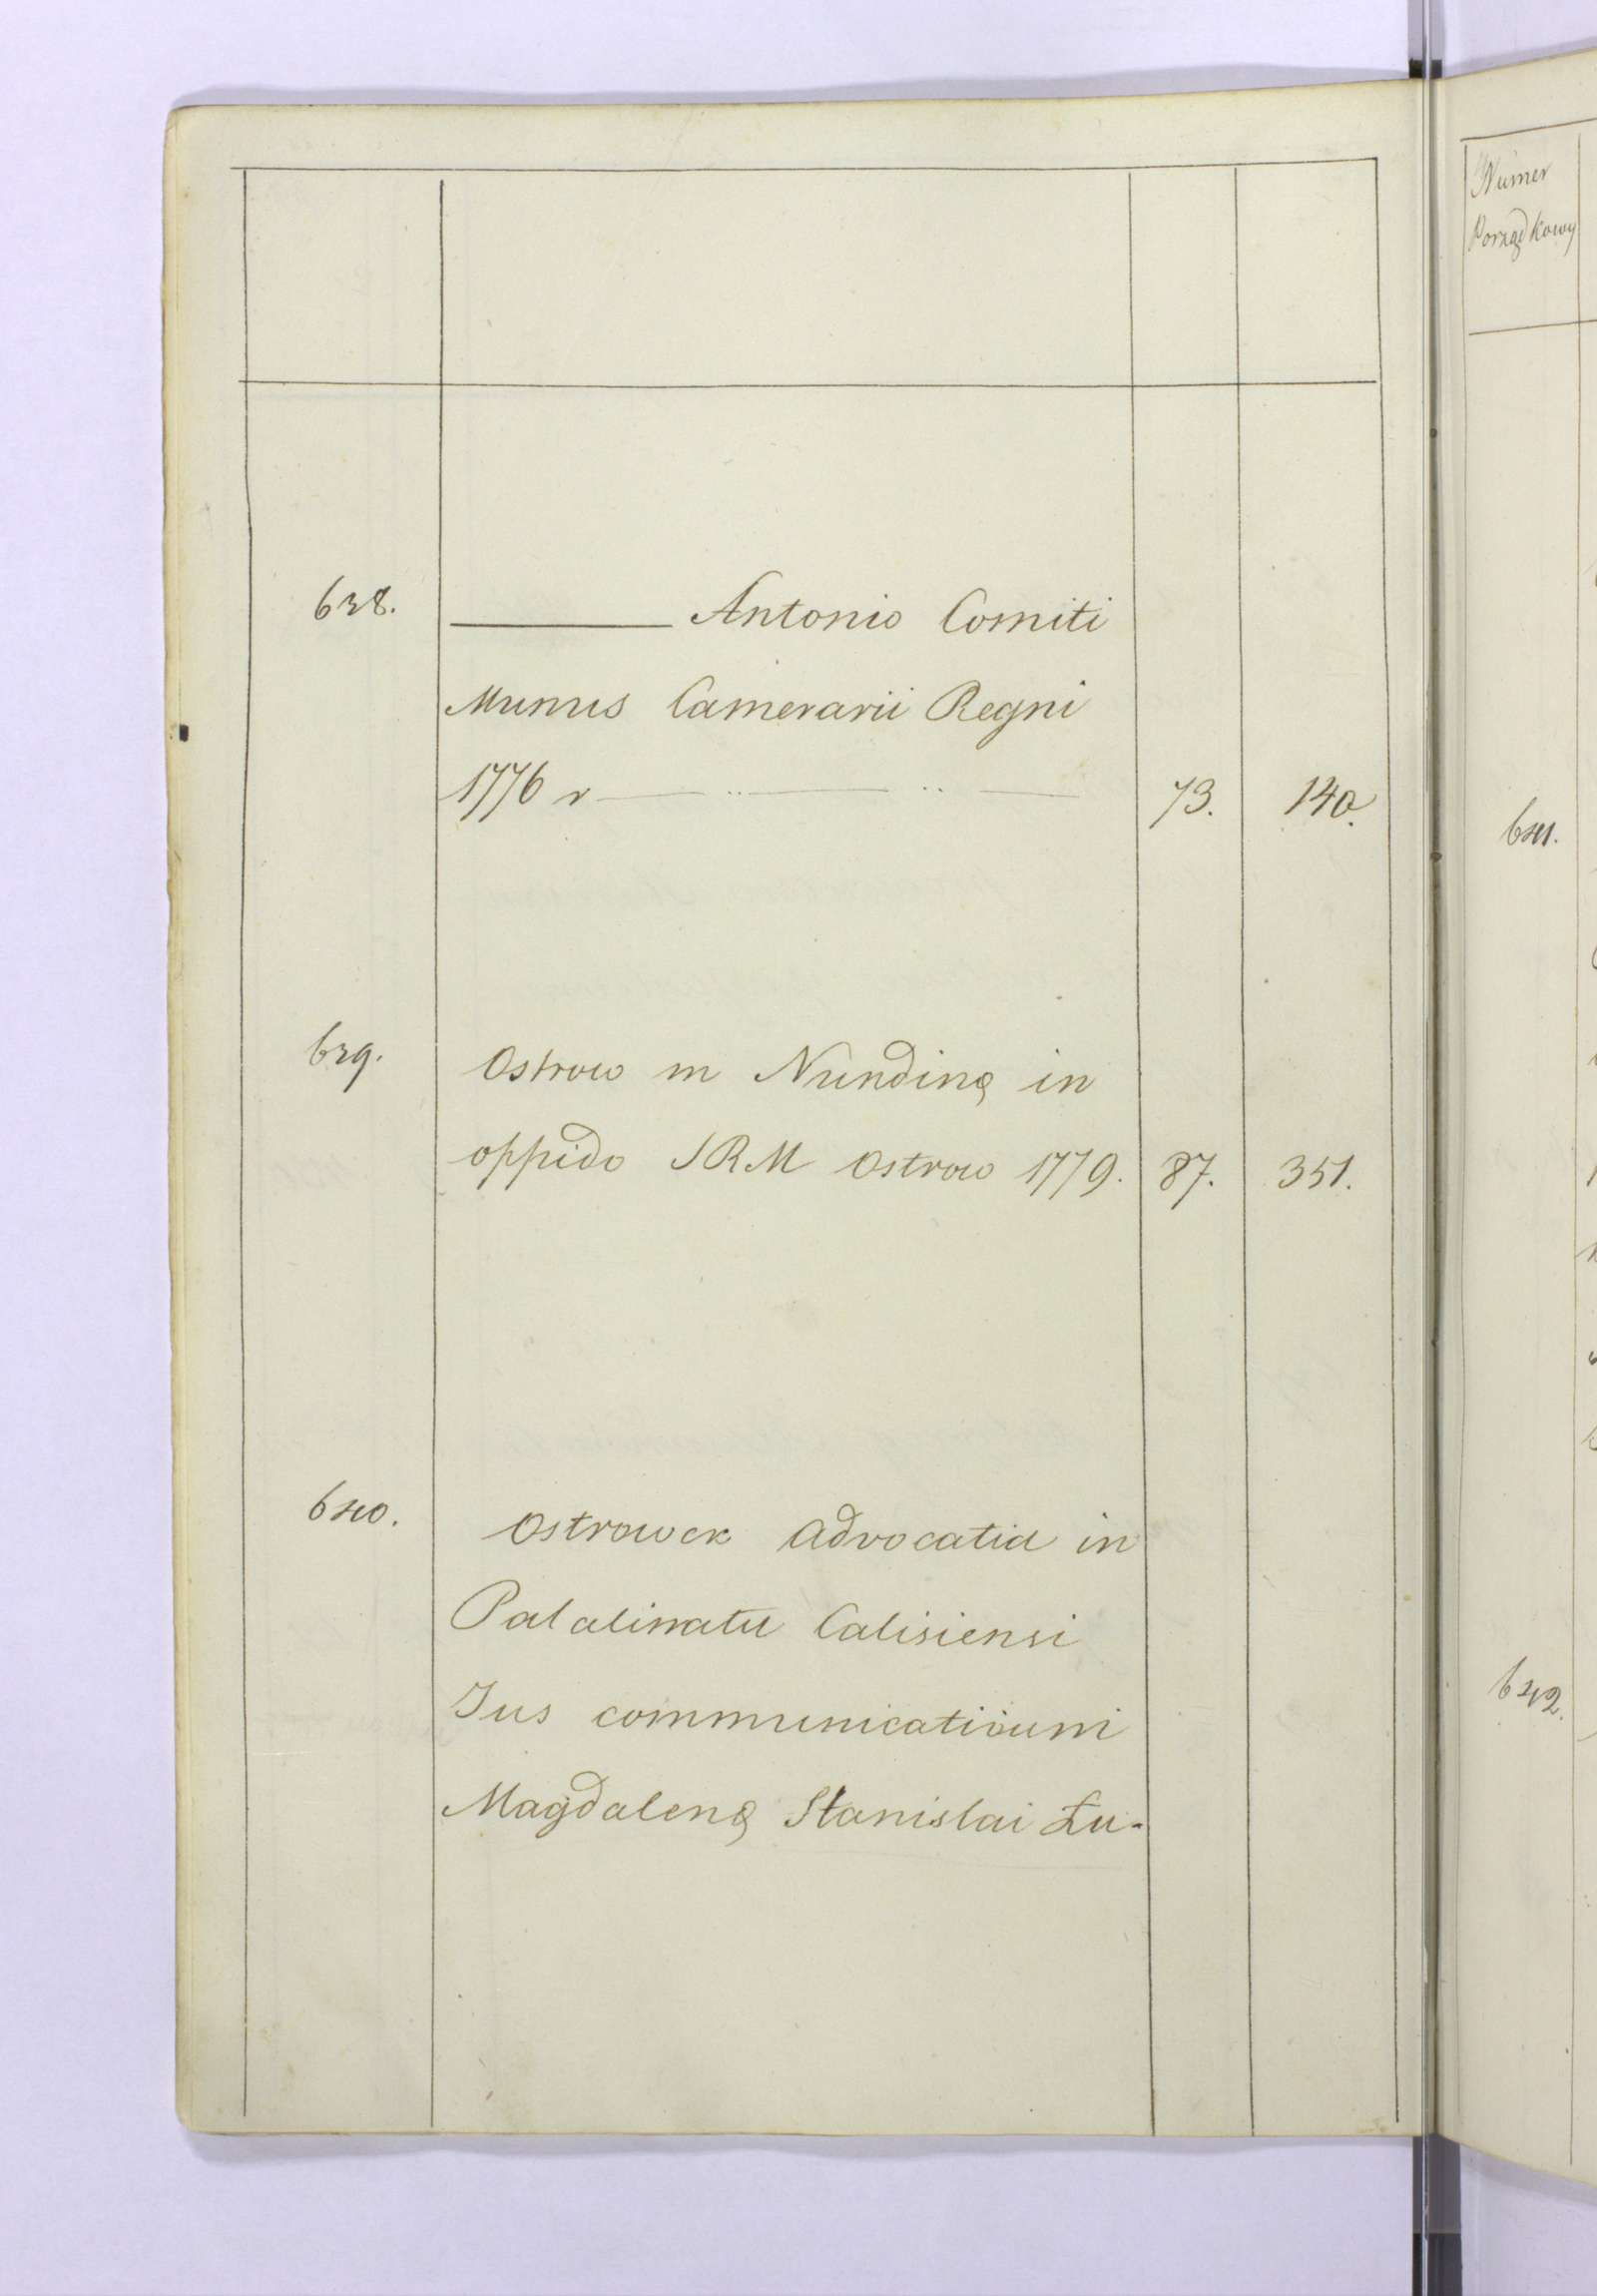 638. ——— Antonio Comiti
Munus Camerarii Regni
1776 r — .. — .. — 73. 140.
639. Ostrow m Nundinę in
oppido SRM Ostrow 1779. 87. 351.
640. Ostrowek Advocatia in
Palatinatu Calisiensi
Jus communicativum
Magdalenę Stanislai Łu-
Numer
Porządkowy
641.
642.